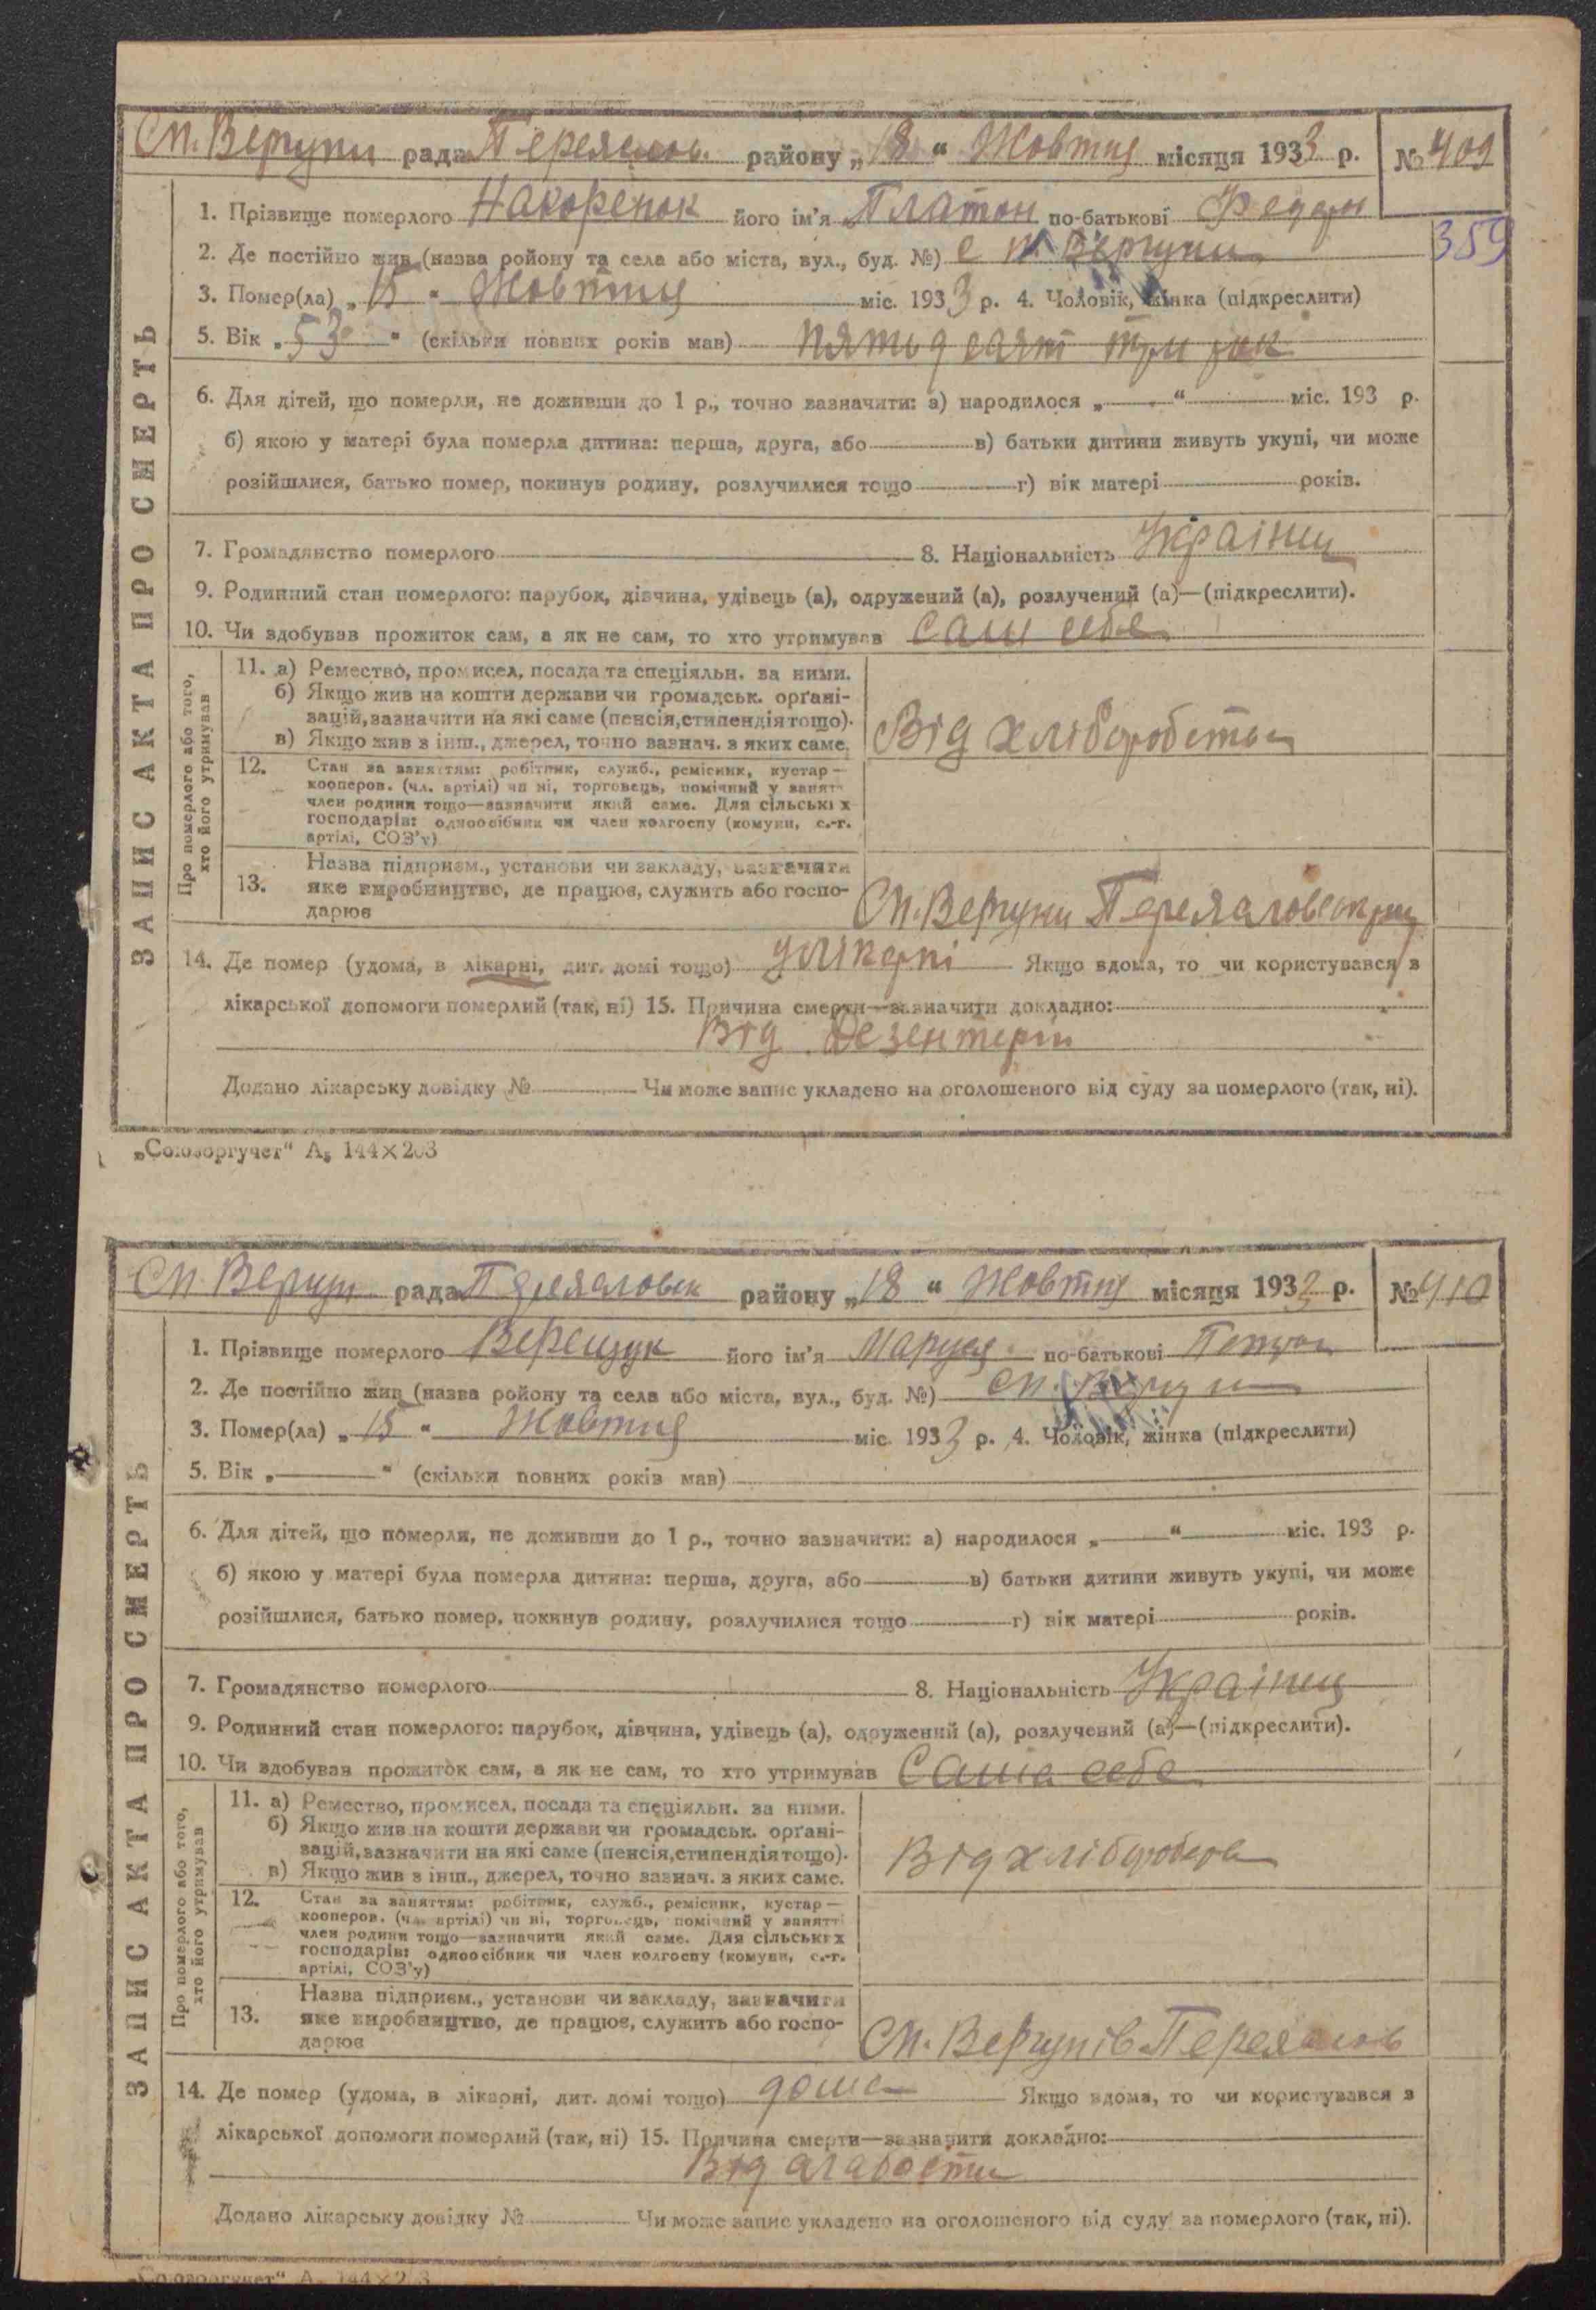 Сп. Вергуни рада Переяслов. району „18“ Жовтня місяця 1933 р. № 409
1. Прізвище померлого Накоренок його ім'я Платон по-батькові Федор
359
2. Де постійно жив (назва ройону та села або міста, вул., буд. №) Вергуни
3. Помер(ла) „15“ Жовтня міс. 1933 р. 4. Чоловік, жінка (підкреслити)
5. Вік „53“ (скільки повних років мав) пятьдесят три рок
6. Для дітей, що померли, не доживши до 1 р., точно зазначити: а) народилося „ “ міс. 193 р.
б) якою у матері була померла дитина: перша, друга, або в) батьки дитини живуть укупі, чи може
розійшлися, батько помер, покинув родину, розлучилися тощо г) вік матері років.
7. Громадянство померлого 8. Національність Українц
9. Родинний стан померлого: парубок, дівчина, удівець (а), одружений (а), розлучений (а)—(підкреслити).
10. Чи здобував прожиток сам, а як не сам, то хто утримував Сам себе
ЗАПИС АКТА ПРО СМЕРТЬ
Про померлого або того, хто його утримував
11. а) Ремество, промисел, посада та спеціяльн. за ними.
б) Якщо жив на кошти держави чи громадськ. орґані-
зацій, зазначити на які саме (пенсія, стипендія тощо).
в) Якщо жив з інш., джерел, точно зазнач. з яких саме.
Від хліборобства
12. Стан за заняттям: робітник, служб., ремісник, кустар—
кооперов. (чл. артілі) чи ні, торговець, помічний у занятт
член родини тощо—зазначити який саме. Для сільських
господарів: одноосібник чи член колгоспу (комуни, с.-г.
артілі, СОЗ'у)
13. Назва підприєм., установи чи закладу, зазначити
яке виробництво, де працює, служить або госпо-
дарює
Сп. Вергуни Переяаловскри
14. Де помер (удома, в лікарні, дит. домі тощо) у лікарні Якщо вдома, то чи користувався з
лікарської допомоги померлий (так, ні) 15. Причина смерти—зазначити докладно:
Від дезентерії
Додано лікарську довідку № Чи може запис укладено на оголошеного від суду за померлого (так, ні).
„Союзоргучет“ А₅ 144×203
Сп. Вергун рада Переяаловск району „18“ Жовтня місяця 1933 р. № 410
1. Прізвище померлого Верещук його ім'я Маруся по-батькові Петров
2. Де постійно жив (назва ройону та села або міста, вул., буд. №) сп. Вергун
3. Помер(ла) „15“ Жовтня міс. 1933 р. 4. Чоловік, жінка (підкреслити)
5. Вік „ “ (скільки повних років мав)
6. Для дітей, що померли, не доживши до 1 р., точно зазначити: а) народилося „ “ міс. 193 р.
б) якою у матері була померла дитина: перша, друга, або в) батьки дитини живуть укупі, чи може
розійшлися, батько помер, покинув родину, розлучилися тощо г) вік матері років.
7. Громадянство померлого 8. Національність Українц
9. Родинний стан померлого: парубок, дівчина, удівець (а), одружений (а), розлучений (а)—(підкреслити).
10. Чи здобував прожиток сам, а як не сам, то хто утримував Сама себе
ЗАПИС АКТА ПРО СМЕРТЬ
Про померлого або того, хто його утримував
11. а) Ремество, промисел, посада та спеціяльн. за ними.
б) Якщо жив на кошти держави чи громадськ. орґані-
зацій, зазначити на які саме (пенсія, стипендія тощо).
в) Якщо жив з інш., джерел, точно зазнач. з яких саме.
Від хлібороба
12. Стан за заняттям: робітник, служб., ремісник, кустар—
кооперов. (чл. артілі) чи ні, торговець, помічний у занятті
член родини тощо—зазначити який саме. Для сільських
господарів: одноосібник чи член колгоспу (комуни, с.-г.
артілі, СОЗ'у)
13. Назва підприєм., установи чи закладу, зазначити
яке виробництво, де працює, служить або госпо-
дарює
Сп. Вергунів Переяслов
14. Де помер (удома, в лікарні, дит. домі тощо) дома Якщо вдома, то чи користувався з
лікарської допомоги померлий (так, ні) 15. Причина смерти—зазначити докладно:
Від слабости
Додано лікарську довідку № Чи може запис укладено на оголошеного від суду за померлого (так, ні).
„Союзоргучет“ А₅ 144×203